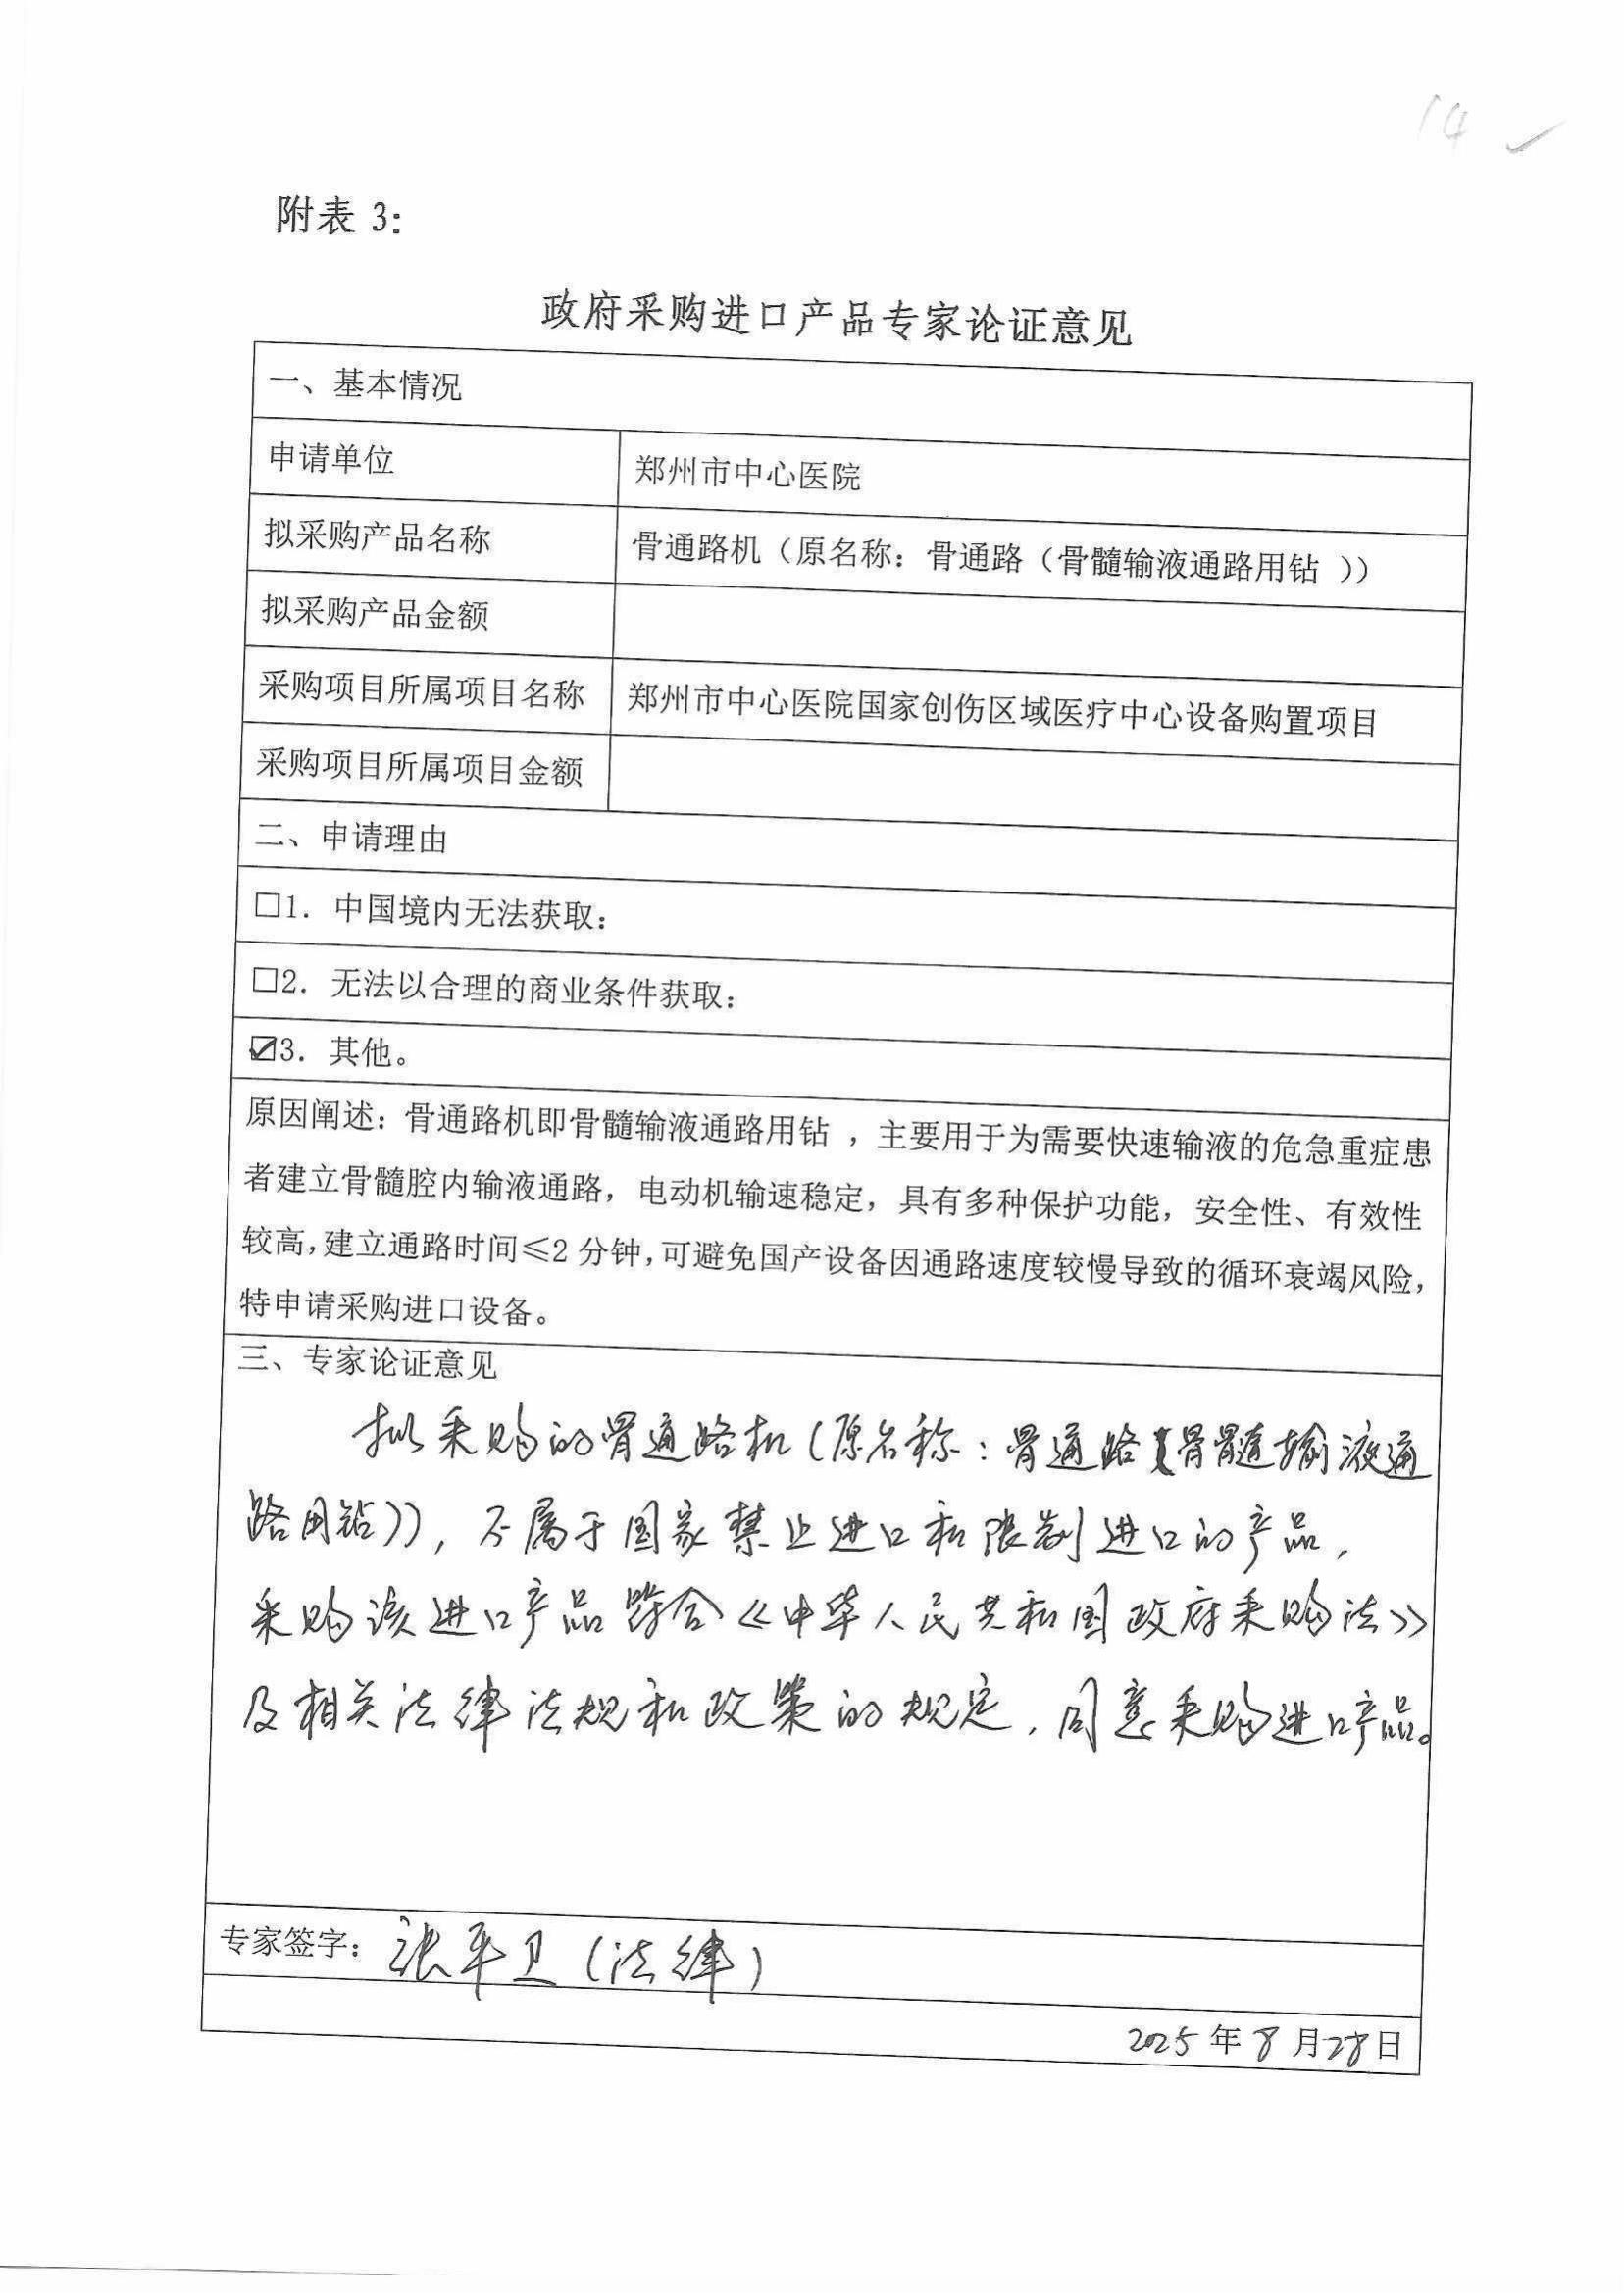 14 ✓
附表 3：
政府采购进口产品专家论证意见
一、基本情况
申请单位 郑州市中心医院
拟采购产品名称 骨通路机（原名称：骨通路（骨髓输液通路用钻 ））
拟采购产品金额
采购项目所属项目名称 郑州市中心医院国家创伤区域医疗中心设备购置项目
采购项目所属项目金额
二、申请理由
☐1. 中国境内无法获取：
☐2. 无法以合理的商业条件获取：
☑3. 其他。
原因阐述：骨通路机即骨髓输液通路用钻 ，主要用于为需要快速输液的危急重症患
者建立骨髓腔内输液通路，电动机输速稳定，具有多种保护功能，安全性、有效性
较高，建立通路时间≤2 分钟，可避免国产设备因通路速度较慢导致的循环衰竭风险，
特申请采购进口设备。
三、专家论证意见
拟采购的骨通路机（原名称：骨通路（骨髓输液通
路用钻）），不属于国家禁止进口和限制进口的产品，
采购该进口产品符合《中华人民共和国政府采购法》
及相关法律法规和政策的规定，同意采购进口产品。
专家签字： 张平（法律）
2025 年 8 月 28 日